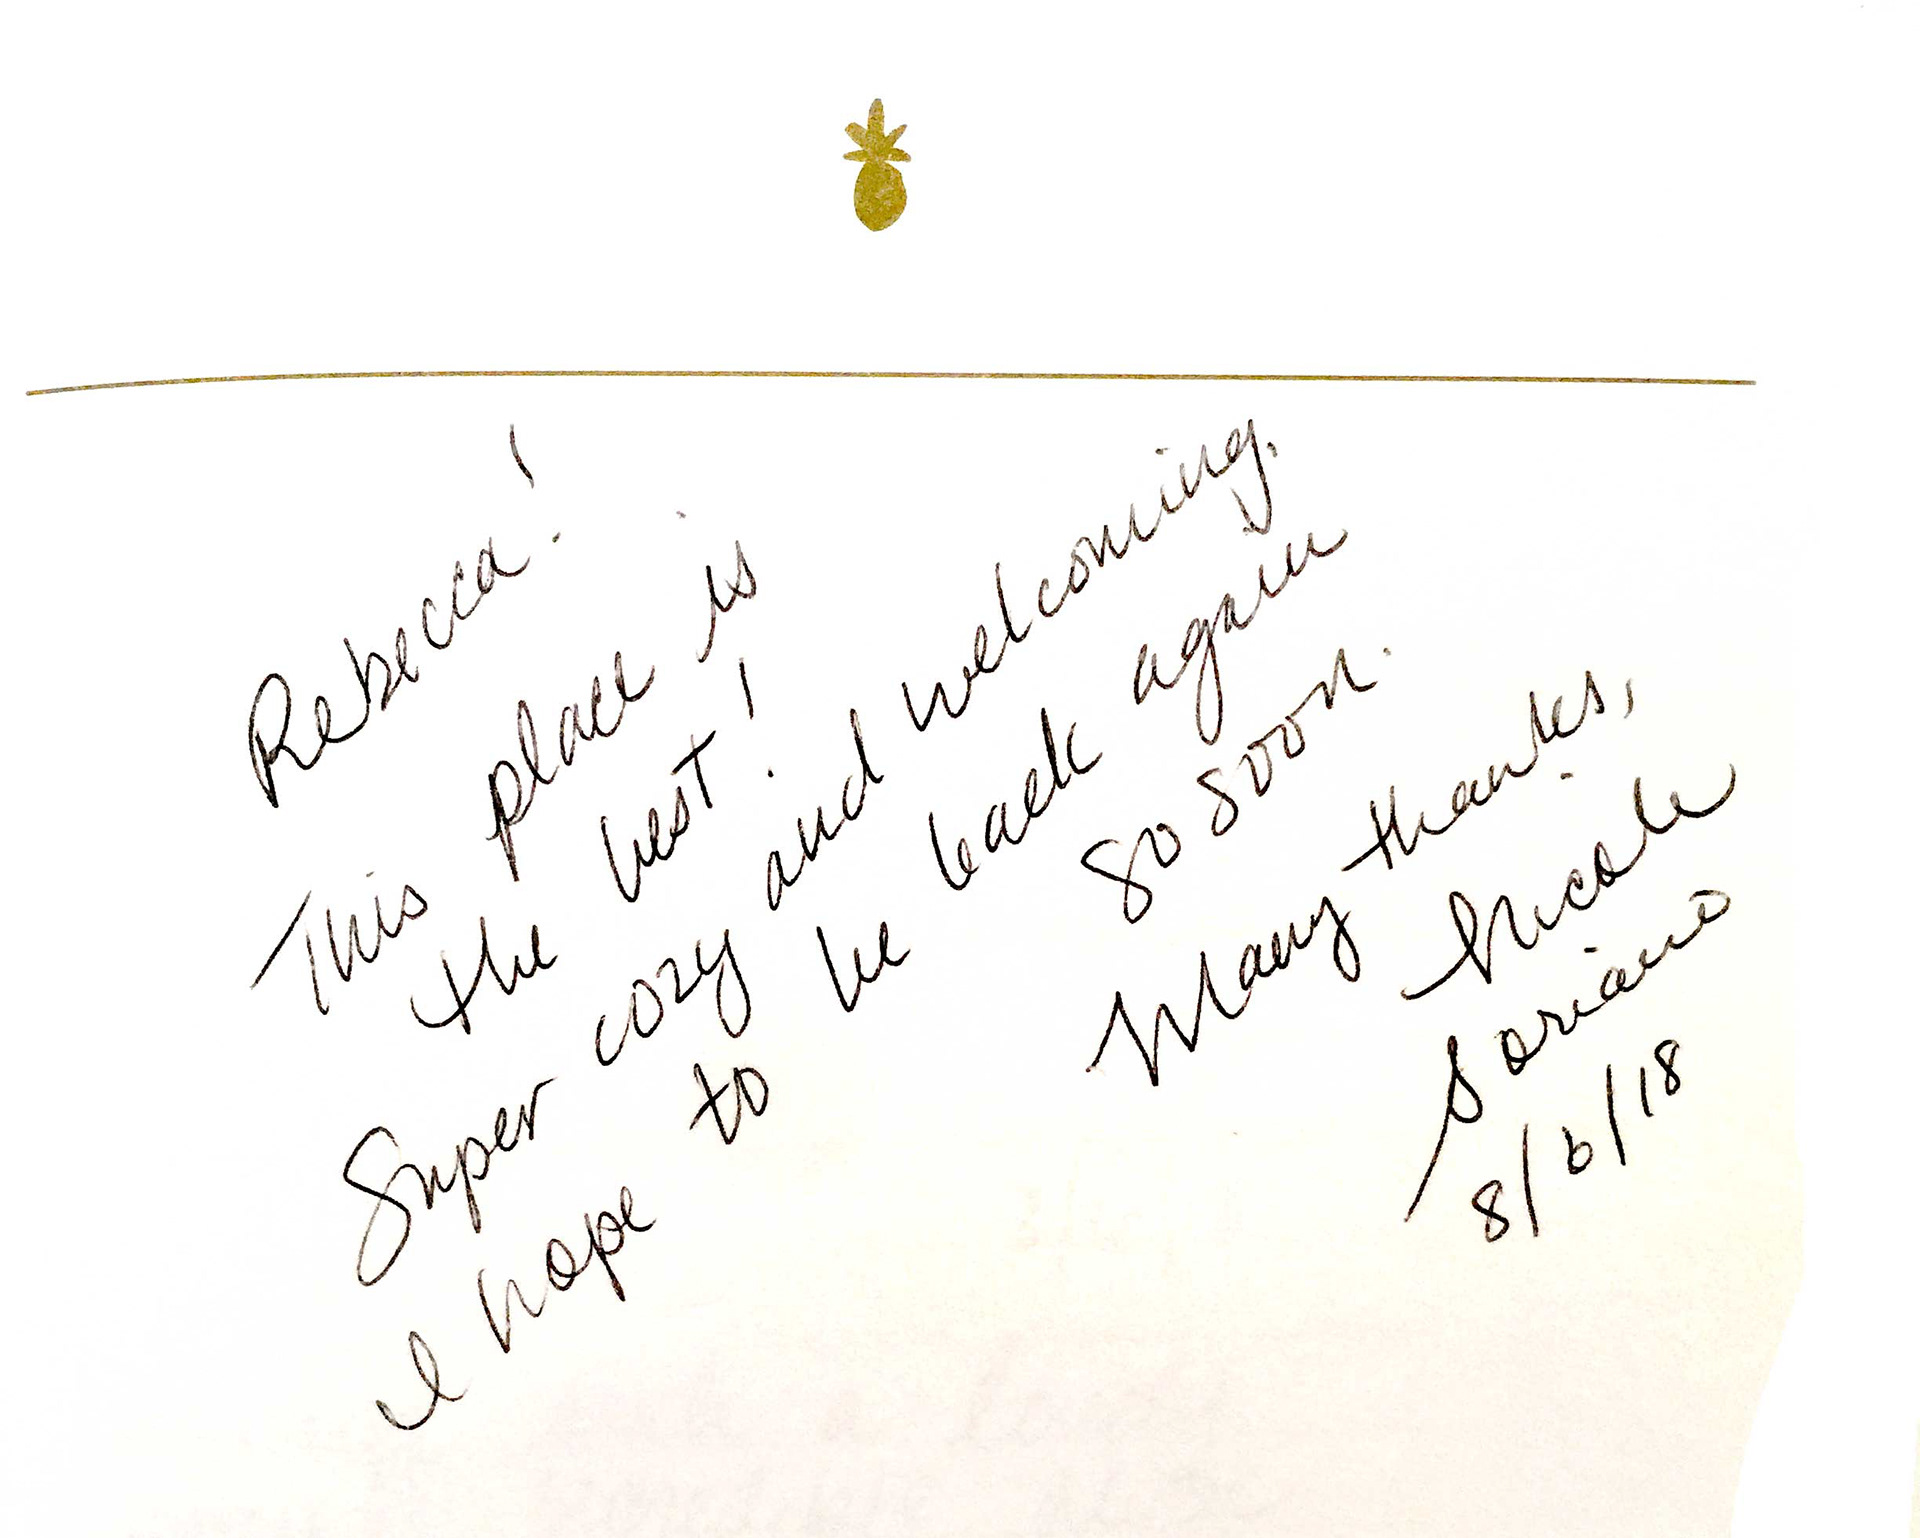 Rebecca!
This place is
the best!
Super cozy and welcoming.
I hope to be back again
so soon.
Many thanks,
Nicole
Soriano
8/6/18